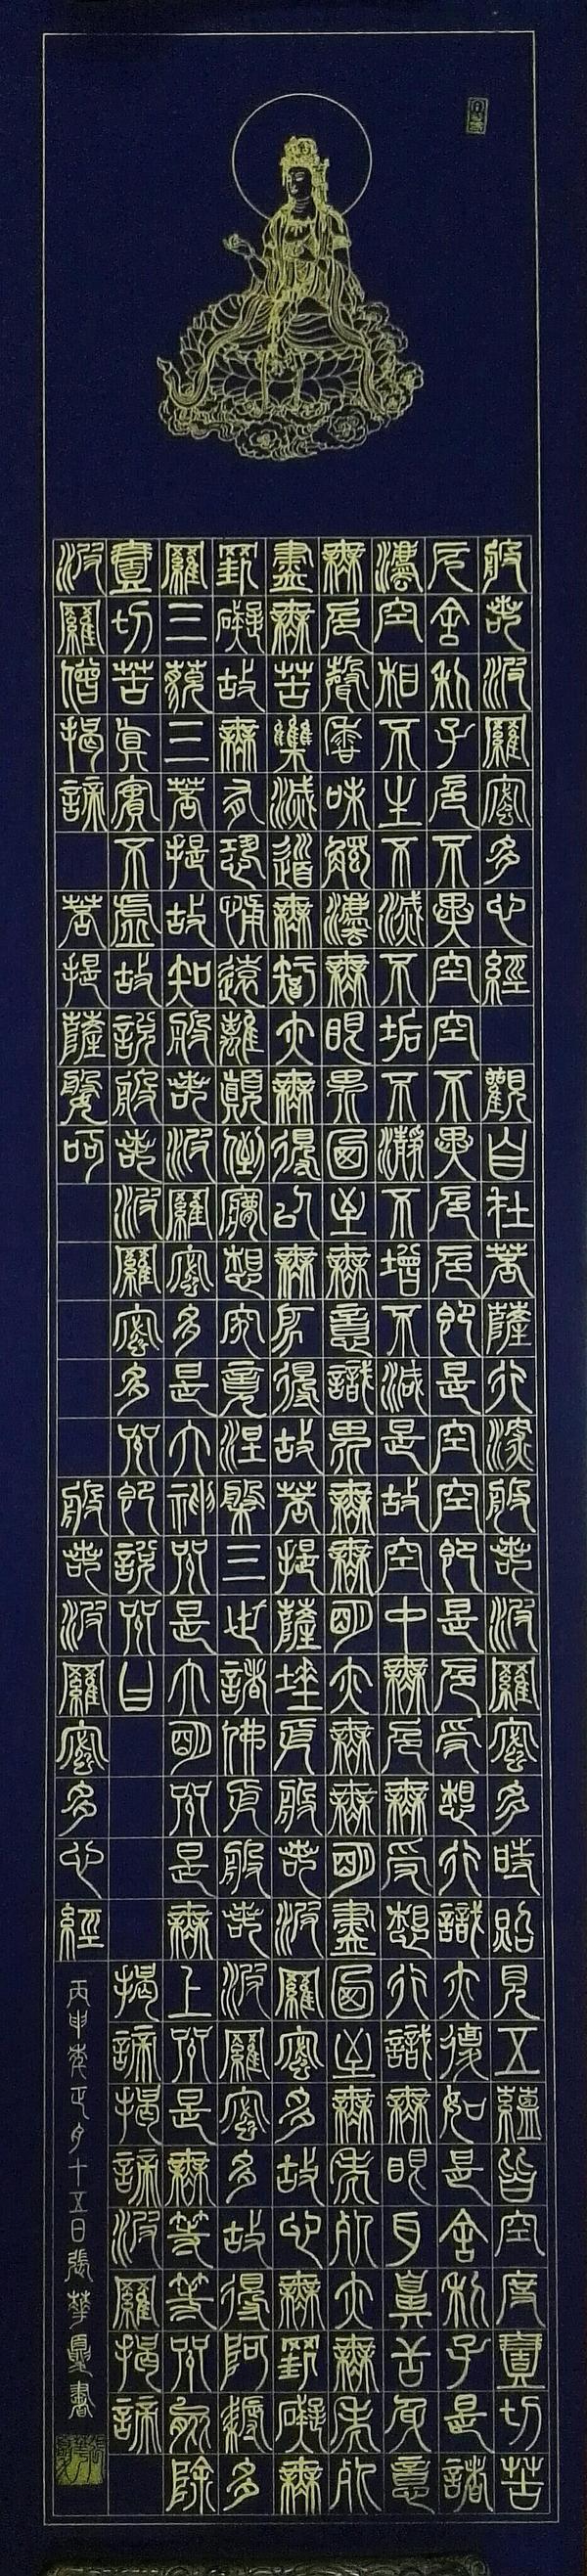 般若波羅蜜多心經 觀自在菩薩行深般若波羅蜜多時照見五蘊皆空度壹切苦
厄舍利子色不異空空不異色色即是空空即是色受想行識亦復如是舍利子是諸
法空相不生不滅不垢不淨不增不減是故空中無色無受想行識無眼耳鼻舌身意
無色聲香味觸法無眼界乃至無意識界無無明亦無無明盡乃至無老死亦無老死
盡無苦集滅道無智亦無得以無所得故菩提薩埵依般若波羅蜜多故心無罣礙無
罣礙故無有恐怖遠離顛倒夢想究竟涅槃三世諸佛依般若波羅蜜多故得阿耨多
羅三藐三菩提故知般若波羅蜜多是大神咒是大明咒是無上咒是無等等咒能除
壹切苦真實不虛故說般若波羅蜜多咒即說咒曰 揭諦揭諦波羅揭諦
波羅僧揭諦 菩提薩婆訶 般若波羅蜜多心經
丙申年正月十五日張華書